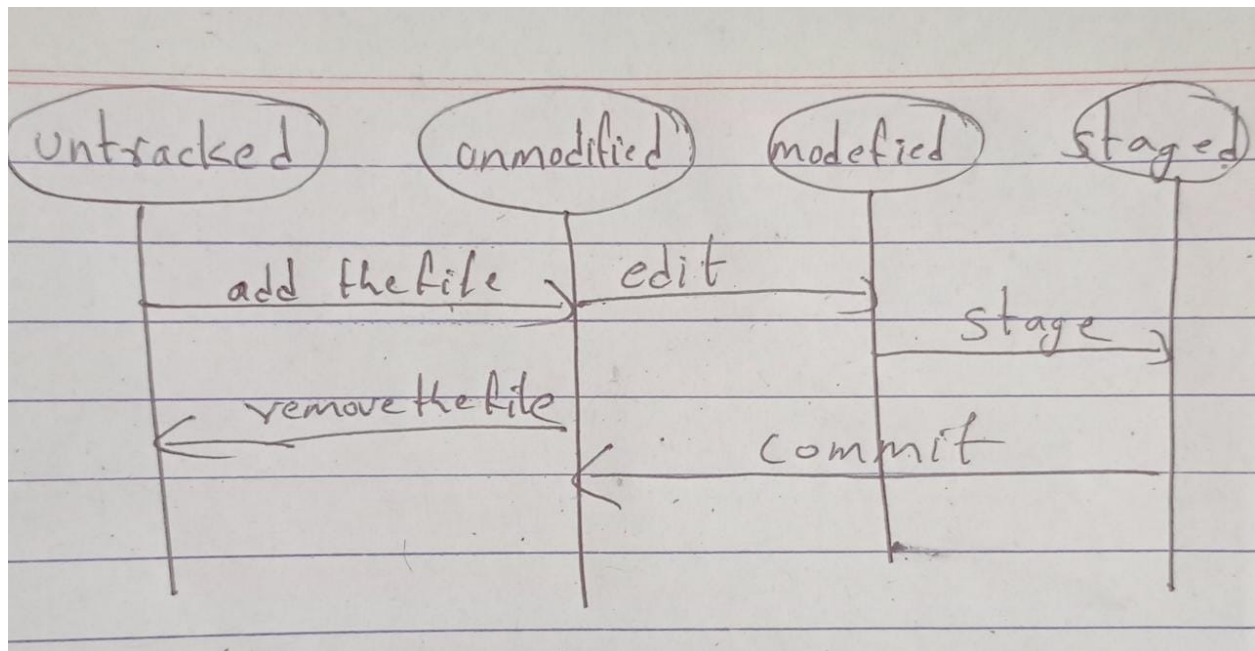 untracked unmodified modefied staged
add the file edit
stage
remove the file
commit